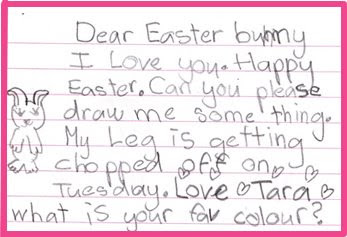 Dear Easter bunny
I Love you. Happy
Easter. Can you please
draw me some thing.
My Leg is getting
chopped off on
Tuesday. Love Tara
what is your fav colour?